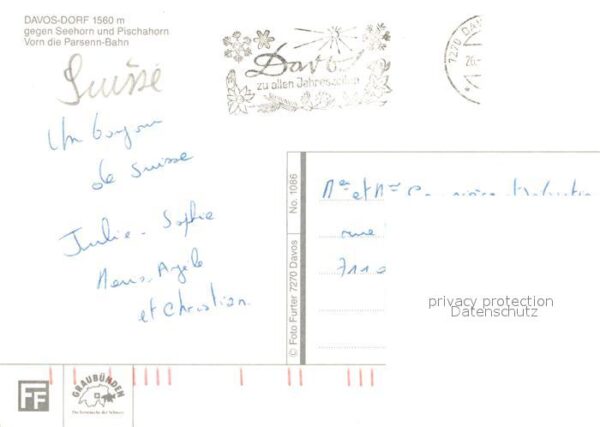 DAVOS-DORF 1560 m
gegen Seehorn und Pischahorn
Vorn die Parsenn-Bahn
Suisse
Davos
zu allen Jahreszeiten
7270 DA
26.
Un bonjour
de Suisse
Julie - Sophie
Marie-Angèle
et Christian.
© Foto Furter 7270 Davos No. 1086
Mr et Mme
rue
7110
privacy protection
Datenschutz
FF
GRAUBÜNDEN
Die Ferienecke der Schweiz